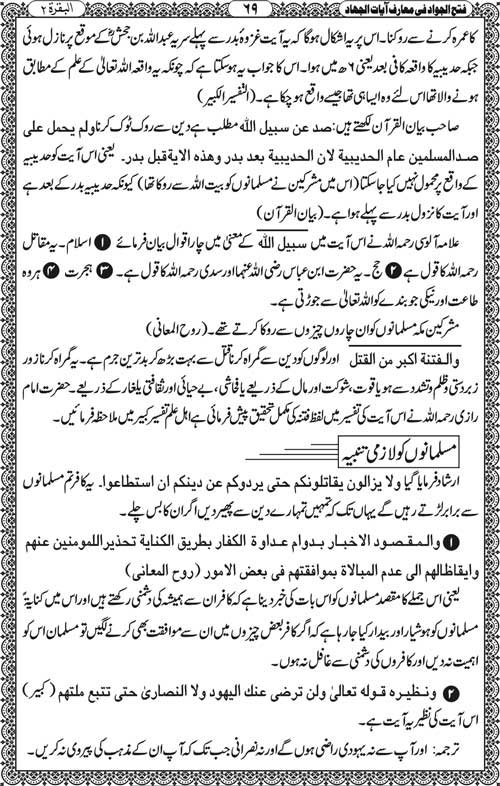 فتح الجواد فی معارف آیات الجهاد
۶۹
البقرة ۲
کا عمرہ کرنے سے روکنا۔ اس پر یہ اشکال ہوگا کہ یہ آیت غزوۂ بدر سے پہلے سریہ عبداللہ بن جحشؓ کے موقع پر نازل ہوئی
جبکہ حدیبیہ کا واقعہ کافی بعد یعنی ۶ھ میں ہوا۔ اس کا جواب یہ ہوسکتا ہے کہ چونکہ یہ واقعہ اللہ تعالیٰ کے علم کے مطابق
ہونے والا تھا اس لئے وہ ایسا ہی تھا جیسے واقع ہوچکا ہے۔ (التفسیر الکبیر)
صاحب بیان القرآن لکھتے ہیں: صد عن سبیل الله مطلب ہے دین سے روک ٹوک کرنا ولم یحمل علی
صد المسلمین عام الحدیبیة لان الحدیبیة بعد بدر وهذه الایة قبل بدر۔ یعنی اس آیت کو حدیبیہ
کے واقع پر محمول نہیں کیا جاسکتا (اس میں مشرکین نے مسلمانوں کو بیت اللہ سے روکا تھا) کیونکہ حدیبیہ بدر کے بعد ہے
اور آیت کا نزول بدر سے پہلے ہوا ہے۔ (بیان القرآن)
علامہ آلوسی رحمہ اللہ نے اس آیت میں سبیل الله کے معنیٰ میں چار اقوال بیان فرمائے ۱ اسلام۔ یہ مقاتل
رحمہ اللہ کا قول ہے ۲ حج۔ یہ حضرت ابن عباس رضی اللہ عنہما اور سدی رحمہ اللہ کا قول ہے۔ ۳ ہجرت ۴ ہر وہ
طاعت اور نیکی جو بندے کو اللہ تعالیٰ سے جوڑتی ہے۔
مشرکین مکہ مسلمانوں کو ان چاروں چیزوں سے روکا کرتے تھے۔ (روح المعانی)
والفتنة اکبر من القتل اور لوگوں کو دین سے گمراہ کرنا قتل سے بہت بڑھ کر بدترین جرم ہے۔ یہ گمراہ کرنا زور
زبردستی و ظلم و تشدد سے ہو یا قوت، شوکت اور مال کے ذریعے یا فحاشی، بے حیائی اور ثقافتی یلغار کے ذریعے۔ حضرت امام
رازی رحمہ اللہ نے اس آیت کی تفسیر میں لفظ فتنہ کی مکمل تحقیق پیش فرمائی ہے اہل علم تفسیر کبیر میں ملاحظہ فرمائیں۔
مسلمانوں کو لازمی تنبیہ
ارشاد فرمایا گیا ولا یزالون یقاتلونکم حتی یردوکم عن دینکم ان استطاعوا۔ یہ کافر تم مسلمانوں
سے برابر لڑتے رہیں گے یہاں تک کہ تمہیں تمہارے دین سے پھیر دیں اگر ان کا بس چلے۔
۱ والمقصود الاخبار بدوام عداوة الکفار بطریق الکنایة تحذیر اللمومنین عنهم
وایقاظالهم الی عدم المبالاة بموافقتهم فی بعض الامور (روح المعانی)
یعنی اس جملے کا مقصد مسلمانوں کو اس بات کی خبر دینا ہے کہ کافر ان سے ہمیشہ کی دشمنی رکھتے ہیں اور اس میں کنایۃً
مسلمانوں کو ہوشیار اور بیدار کیا جارہا ہے کہ اگر کافر بعض چیزوں میں ان سے موافقت بھی کرنے لگیں تو مسلمان اس کو
اہمیت نہ دیں اور کافروں کی دشمنی سے غافل نہ ہوں۔
۲ ونظیره قوله تعالیٰ ولن ترضی عنك الیهود ولا النصاریٰ حتی تتبع ملتهم (کبیر)
اس آیت کی نظیر یہ آیت ہے۔
ترجمہ: اور آپ سے نہ یہودی راضی ہوں گے اور نہ نصرانی جب تک کہ آپ ان کے مذہب کی پیروی نہ کریں۔